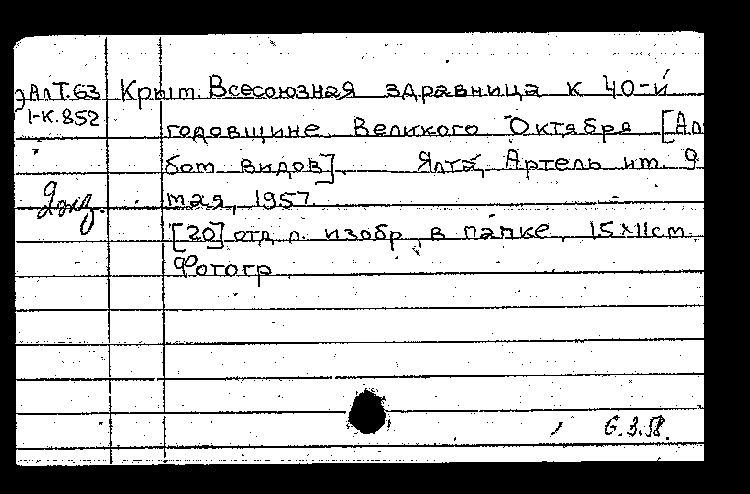 ЭАлТ.63 Крым. Всесоюзная здравница к 40-й
1-К.852
годовщине Великого Октября [Аль
бом видов]. Ялта, Артель им. 9
мая, 1957.
2 экз.
[20] отд. л. изобр. в папке, 15×11см.
Фотогр
6.3.58.